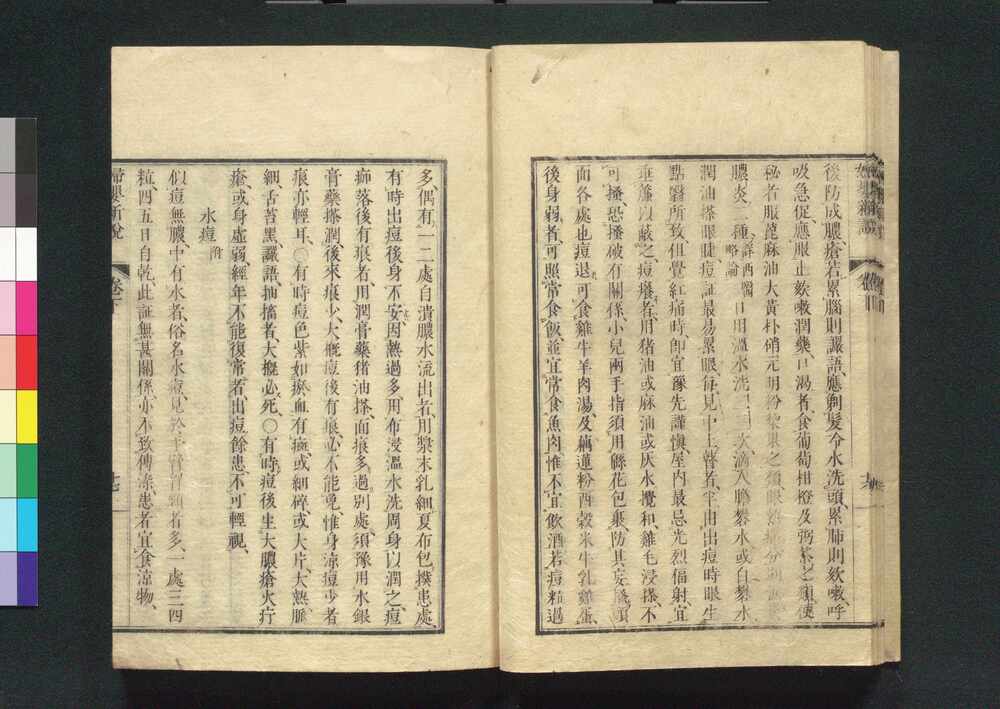 後防成膿瘡若累腦則讝語、應剃髮令水洗頭、累肺則欬嗽、呼
吸急促、應服止欬嗽潤藥、口渴者食葡萄柑橙及粥茶之類、便
秘者服蓖麻油大黃朴硝元明粉
膿炎二種詳西醫略論日用溫水洗 次滴入膽礬水或白礬水
潤油搽眼睫、痘証最易累眼、每見中土瞽者、半由出痘時眼生
點翳所致、但覺紅痛時、卽宜豫先謹愼、屋内最忌光烈倍射、宜
垂簾以蔽之、痘癢者、用猪油或麻油或灰水攪和、雞毛浸搽、不
可搔、恐搔破有關係、小兒兩手指須用綿花包裹、防其妄搔頭
面各處也、痘退、可食雞牛羊肉湯、及藕蓮粉西穀米牛乳雞蛋、
後身弱者、可照常食飯、並宜常食魚肉、惟不宜飲酒、若痘粒過
多、偶有一二處自潰膿水流出者、用漿末乳細、夏布包撲患處、
有時出痘後身不安、因熱過多、用布浸溫水洗周身以潤之、痘
痂落後有痕者、用潤膏藥猪油搽、面痕多過別處、須豫用水銀
膏藥搽潤、後來痕少、大概痘後有痕、必不能免、惟身涼痘少者
痕亦輕耳、○有時痘色紫如瘀血、有斑、或細碎、或大片、大熱脈
細、舌苔黑、讝語、抽搐者、大概必死、○有時痘後生大膿瘡火疔
瘡、或身虛弱、經年不能復常者、出痘餘患、不可輕視、
水痘附
似痘無膿、中有水者、俗名水痘、見於 者多、一處三四
粒、四五日自乾、此証無甚關係、亦不致傳染、患者宜食涼物、
婦嬰新說